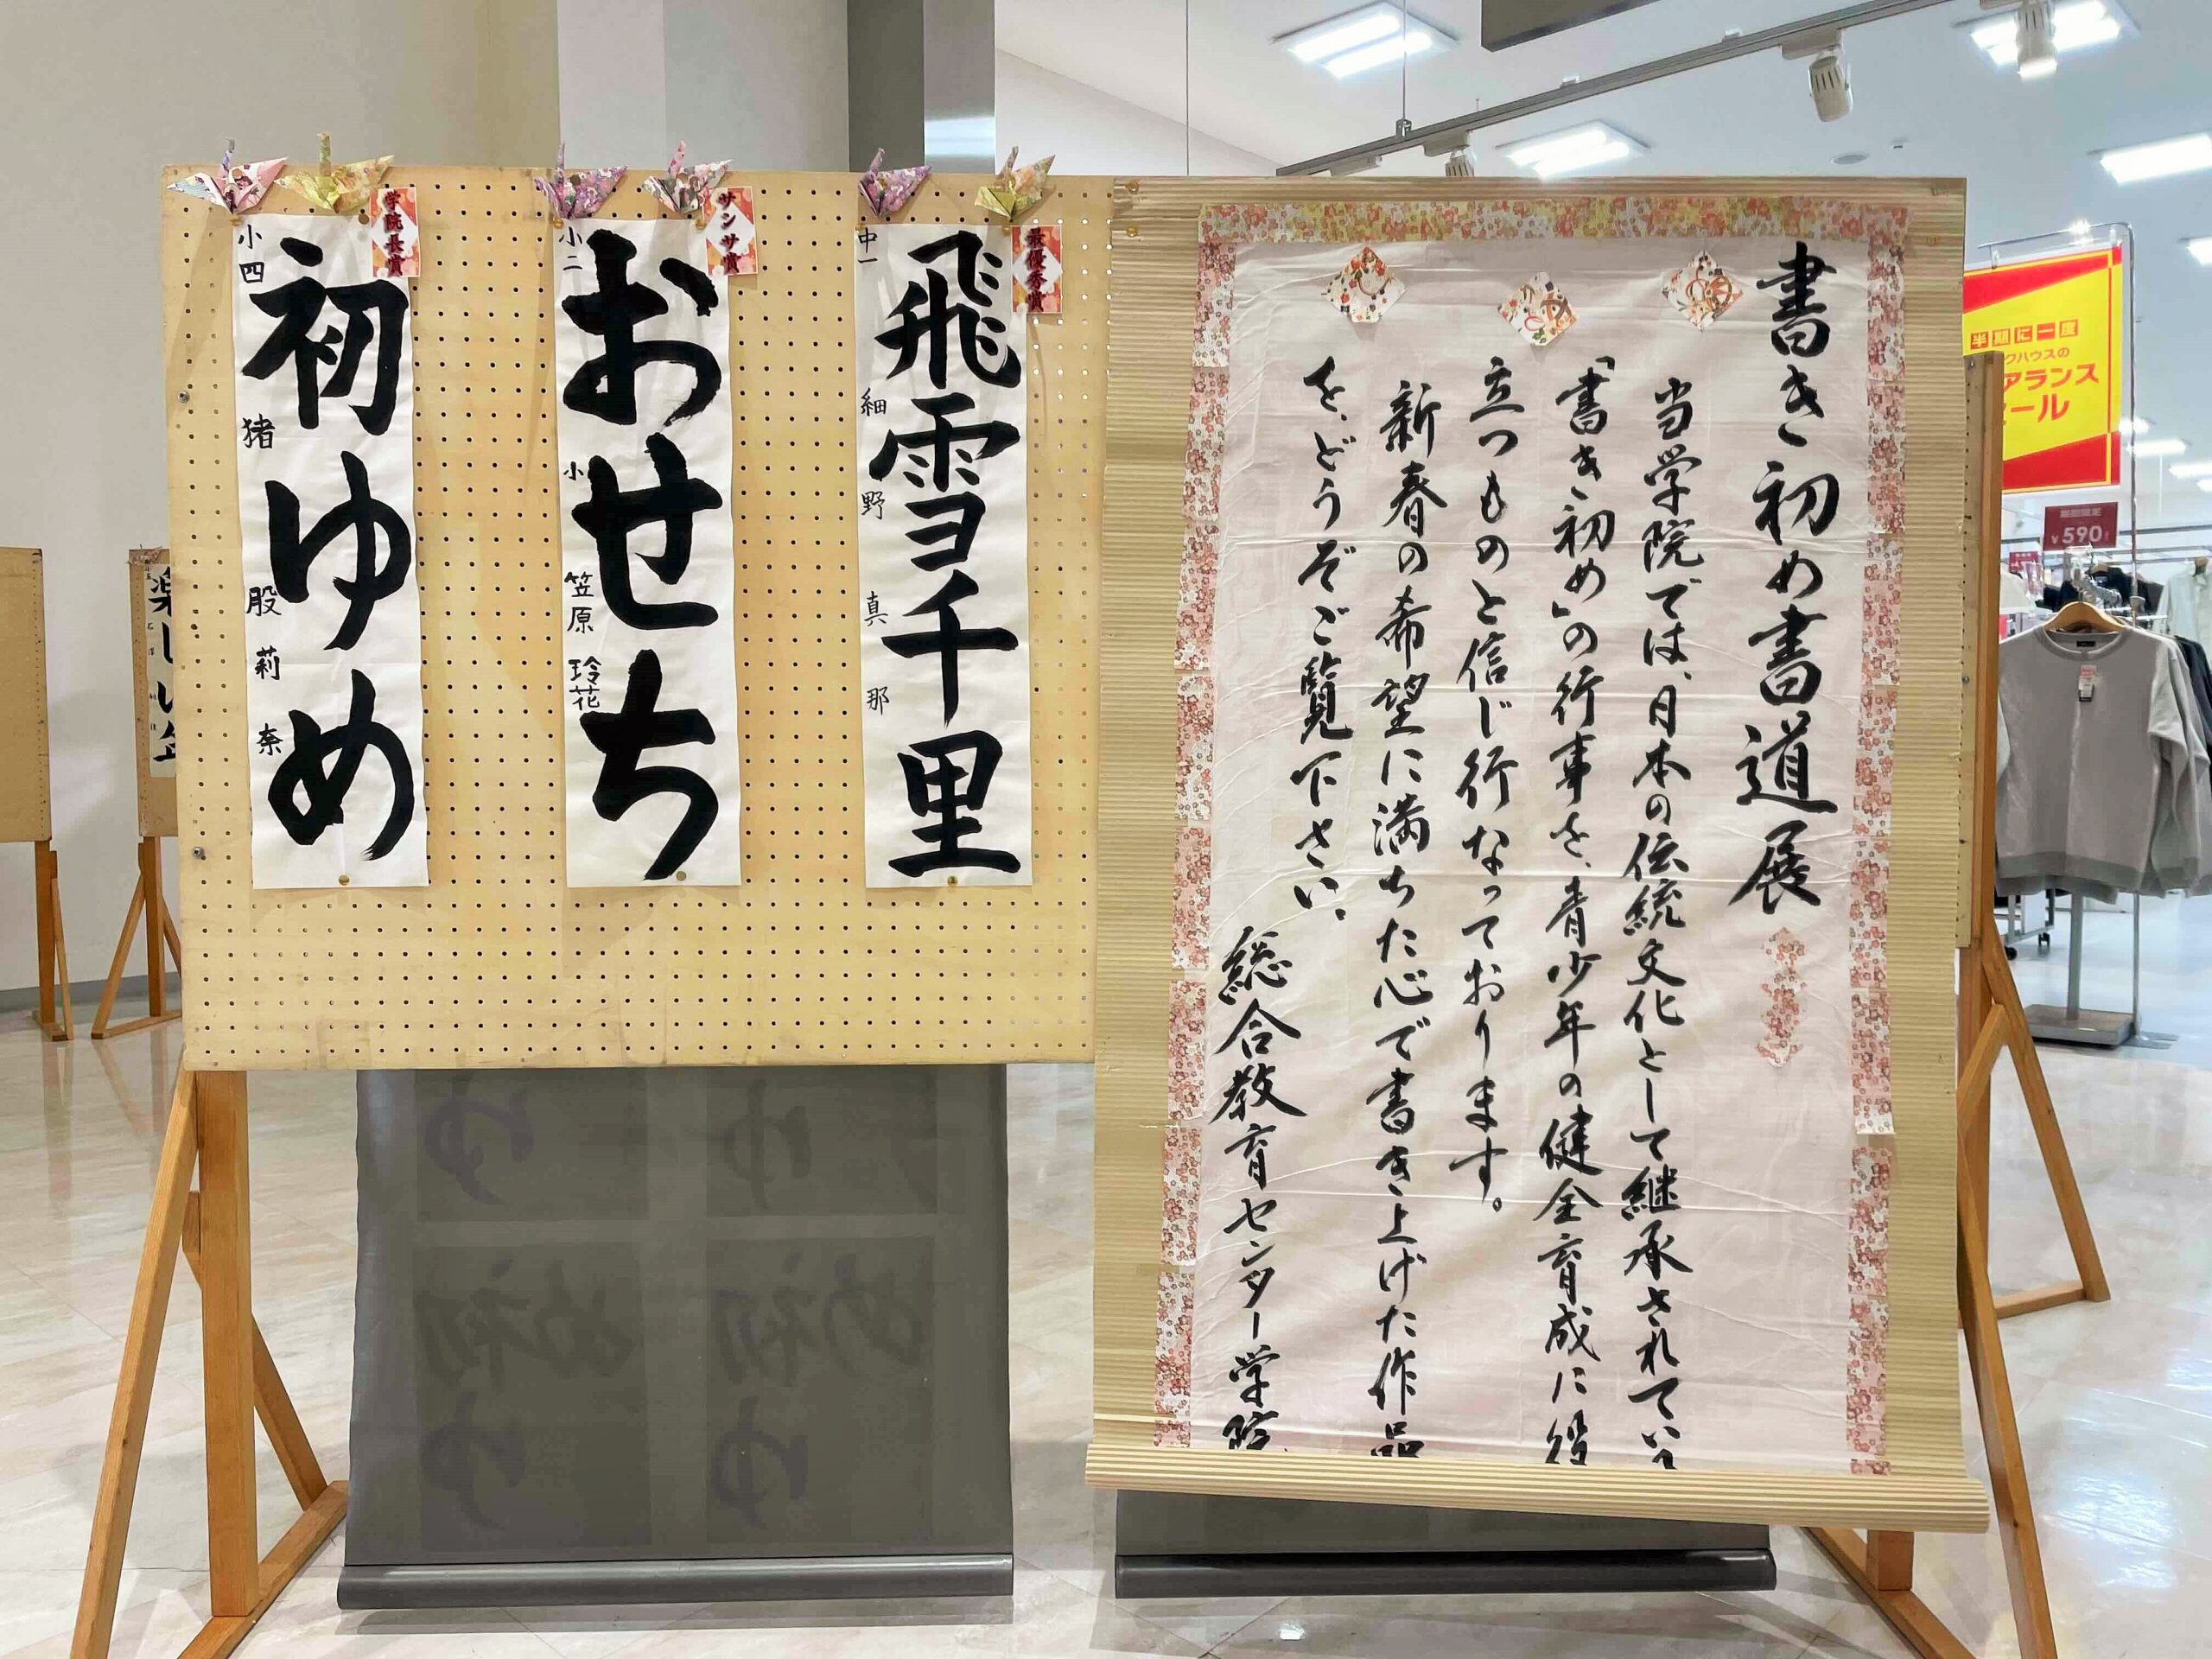 書き初め書道展
当学院では、日本の伝統文化として継承されている
「書き初め」の行事を、青少年の健全育成に役
立つものと信じ行なっております。
新春の希望に満ちた心で書き上げた作品
を、どうぞご覧下さい。
総合教育センター学院
最優秀賞
飛雪千里
中一 細野真那
サンサ賞
おせち
小二 小笠原玲花
学院長賞
初ゆめ
小四 猪股莉奈
楽しい
半期に一度
クハウスの
アランス
ール
¥590